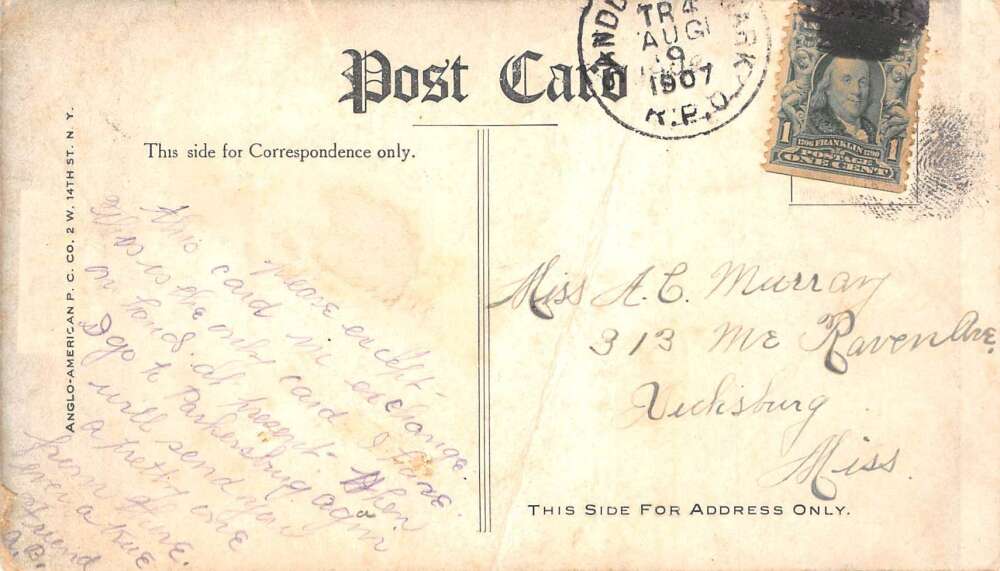 Post Card
This side for Correspondence only.
ANGLO-AMERICAN P. C. CO. 2 W. 14TH ST. N. Y.
TR 4
AUG
19
1907
R.P.O.
1 1706 FRANKLIN 1790 1
POSTAGE
ONE CENT
please except
this card in exchange.
This is the only card I have
on hand. at present. When
I go to Parkersburg again
will send you
a Pretty one
from there.
ever a true
friend
A.B.
Miss A. C. Murray
313 Mc Raven Ave.
Vicksburg
Miss.
THIS SIDE FOR ADDRESS ONLY.